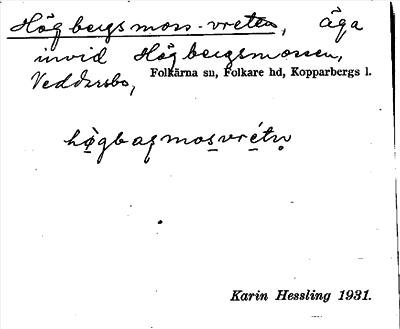 Högbergsmoss-vreten, äga
invid Högbergsmossen,
Veddarsbo,
Folkärna sn, Folkare hd, Kopparbergs l.
Karin Hessling 1931.